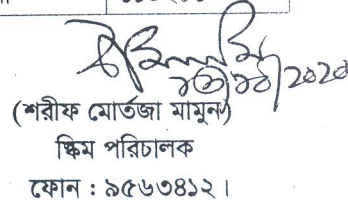 (শরীফ মোর্তজা মামুন)
স্কিম পরিচালক
ফোন : ৯৫৬৩৪১২।